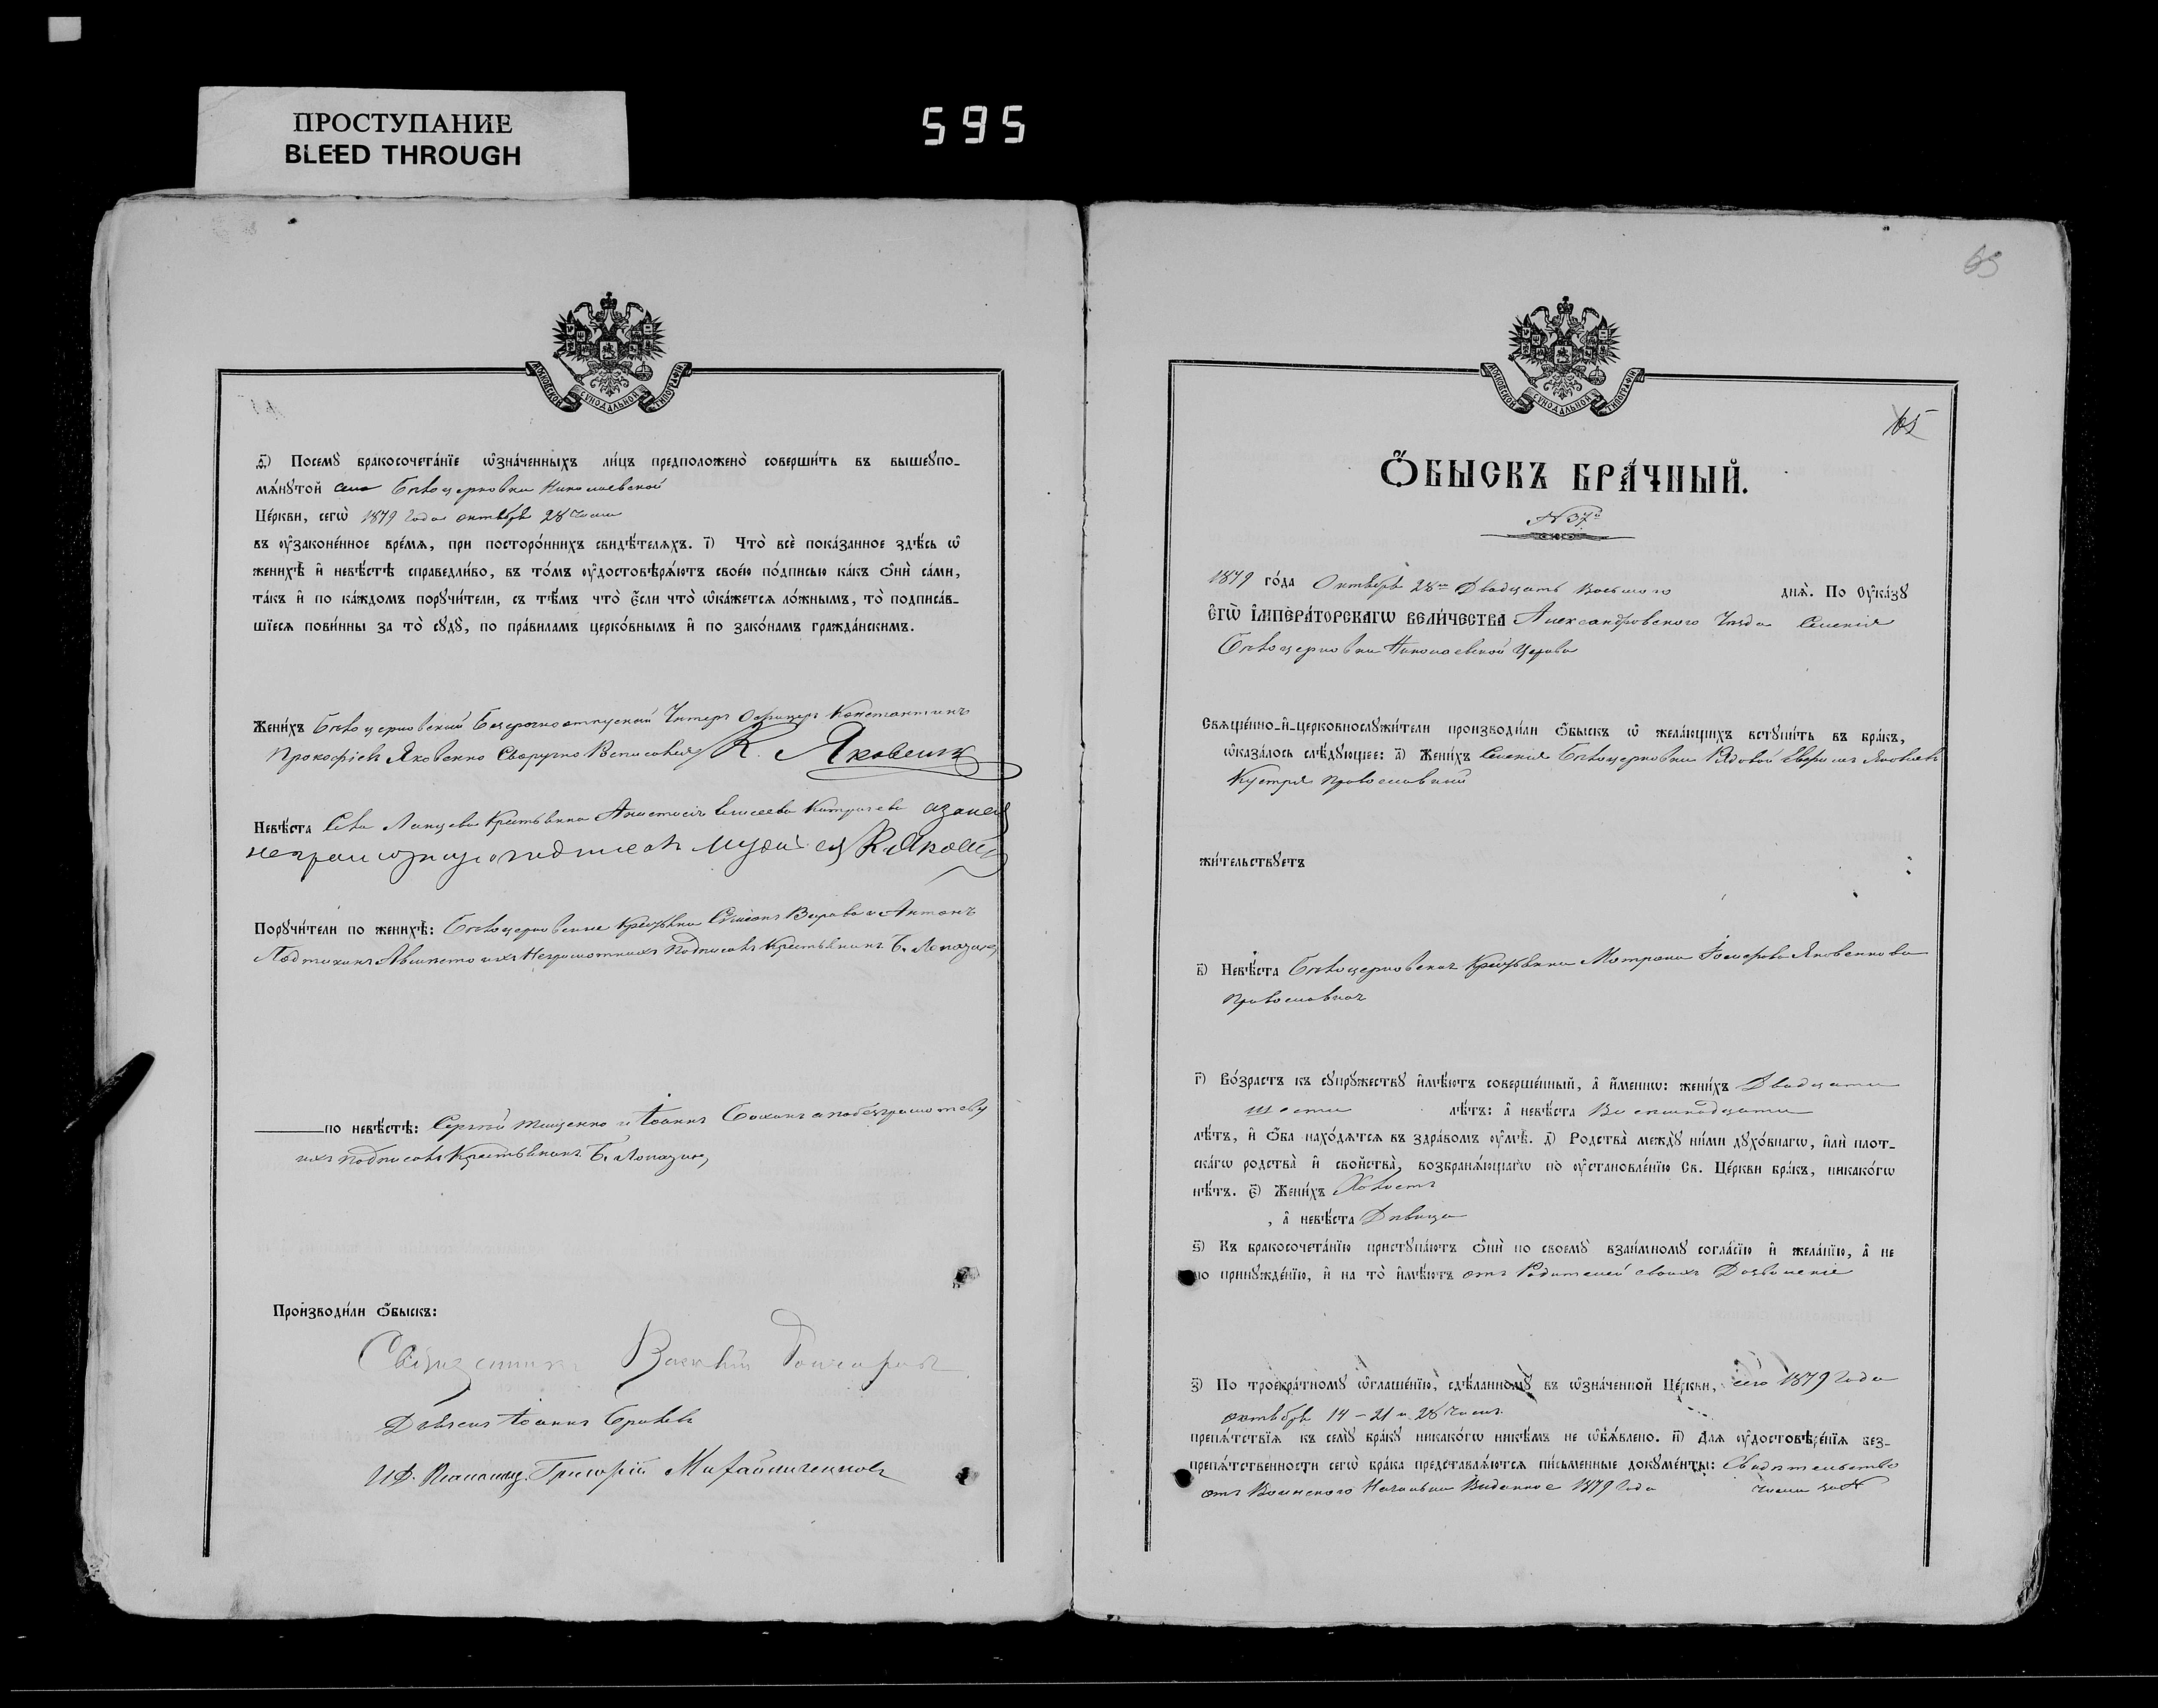 ПРОСТУПАНИЕ
BLEED THROUGH
595
МОСКОВСКОЙ СѴНОДАЛЬНОЙ ТИПОГРАФІИ
Посемꙋ̀ бракосочета́нїе ѡ҆зна́ченныхъ ли́цъ предположено̀ соверши́ть въ вышеꙋпо-
мѧ́нꙋтой села Бѣлоцерковки Николаевской
Це́ркви, сегѡ̀ 1879 года октября 28 числа
въ ᲂу҆зако́ненное вре́мѧ, при посторо́ннихъ свидѣ́телѧхъ. і҃) Что̀ всѐ пока́занное здѣ́сь ѡ҆
женихѣ̀ и҆ невѣ́стѣ справедли́во, въ то́мъ ᲂу҆достовѣрѧ́ютъ свое́ю по́дписью ка́къ ѻ҆нѝ са́ми,
та́къ и҆ по ка́ждомъ порꙋчи́тели, съ тѣ́мъ что̀ є҆́сли что̀ ѡ҆ка́жетсѧ ло́жнымъ, то̀ подписа́в-
шїесѧ пови́нны за то̀ сꙋдꙋ̀, по пра́виламъ церко́внымъ и҆ по зако́намъ гражда́нскимъ.
Жени́хъ Бѣлоцерковский Унтеръ Офицеръ Константинъ
Прокофіевъ Яковенко К. Яковенк
Невѣ́ста Крестьянка Анастасія Елисеева
К. Яков
Порꙋчи́тели по женихѣ̀: Бѣлоцерковские и Антонъ
ихъ неграмотныхъ подписалъ Крестьянинъ Б.
по невѣ́стѣ: Сергѣй Тищенко и Іоаннъ
ихъ подписалъ Крестьянинъ Б.
Произвѡди́ли ѻ҆́быскъ:
Священникъ Василій Гончаровъ
Дьяконъ Іоаннъ
И.Д. Псаломщ. Григорій Михайличенковъ
65
МОСКОВСКОЙ СѴНОДАЛЬНОЙ ТИПОГРАФІИ
65
Ѻ҆́БЫСКЪ БРА́ЧНЫЙ.
N 37й
1879 го́да Октября 28го Двадцать восьмого днѧ̀. По Оу҆ка́зꙋ
Є҆гѡ̀ І҆мпера́торскагѡ Вели́чества Александровского Уѣзда Селенія
Бѣлоцерковки Николаевской Церкви
Свѧще́нно-и҆-церковнослꙋжи́тели производи́ли ѻ҆́быскъ ѡ҆ жела́ющихъ встꙋпи́ть въ бра́къ,
ѡ҆каза́лось слѣ́дꙋющее: а҃) Жени́хъ Селенія Бѣлоцерковки Рядовой Яковлевъ
Кустря православный
жи́тельствꙋетъ
в҃) Невѣ́ста Бѣлоцерковская Крестьянка Матрона Яковенкова
православная
г҃) Во́зрастъ къ сꙋпрꙋ́жествꙋ и҆мѣ́ютъ соверше́нный, а҆ и҆́меннѡ: жени́хъ Двадцати
шести лѣ́тъ: а҆ невѣ́ста Восемнадцати
лѣ́тъ, и҆ ѻ҆́ба нахо́дѧтсѧ въ здра́вомъ ᲂу҆мѣ̀. д҃) Родства̀ междꙋ̀ ни́ми дꙋхо́внагѡ, и҆лѝ плот-
ска́гѡ родства̀ и҆ сво́йства, возбранѧ́ющагѡ по ᲂу҆становле́нїю Св. Це́ркви бра́къ, никако́гѡ
нѣ́тъ. є҃) Жени́хъ Холостъ
, а҆ невѣ́ста Дѣвица
ѕ҃) Къ бракосочета́нїю пристꙋпа́ютъ ѻ҆нѝ по своемꙋ̀ взаи́мномꙋ согла́сїю и҆ жела́нїю, а҆ не
по принꙋжде́нїю, и҆ на то̀ и҆мѣ́ютъ отъ Родителей своихъ Дозволеніе
з҃) По троекра́тномꙋ ѡ҆глаше́нїю, сдѣ́ланномꙋ въ ѡ҆зна́ченной Це́ркви, сего 1879 года
октября 14 – 21 и 28 числа
препѧ́тствїѧ къ семꙋ̀ бра́кꙋ никако́гѡ никѣ́мъ не ѡ҆б̾ѧ́влено. и҃) Длѧ ᲂу҆достовѣре́нїѧ без-
препѧ́тственности сегѡ̀ бра́ка представлѧ́ютсѧ пи́сьменные докꙋме́нты: Свидѣтельство
отъ Воинского Началника Виданное 1879 года числа за N